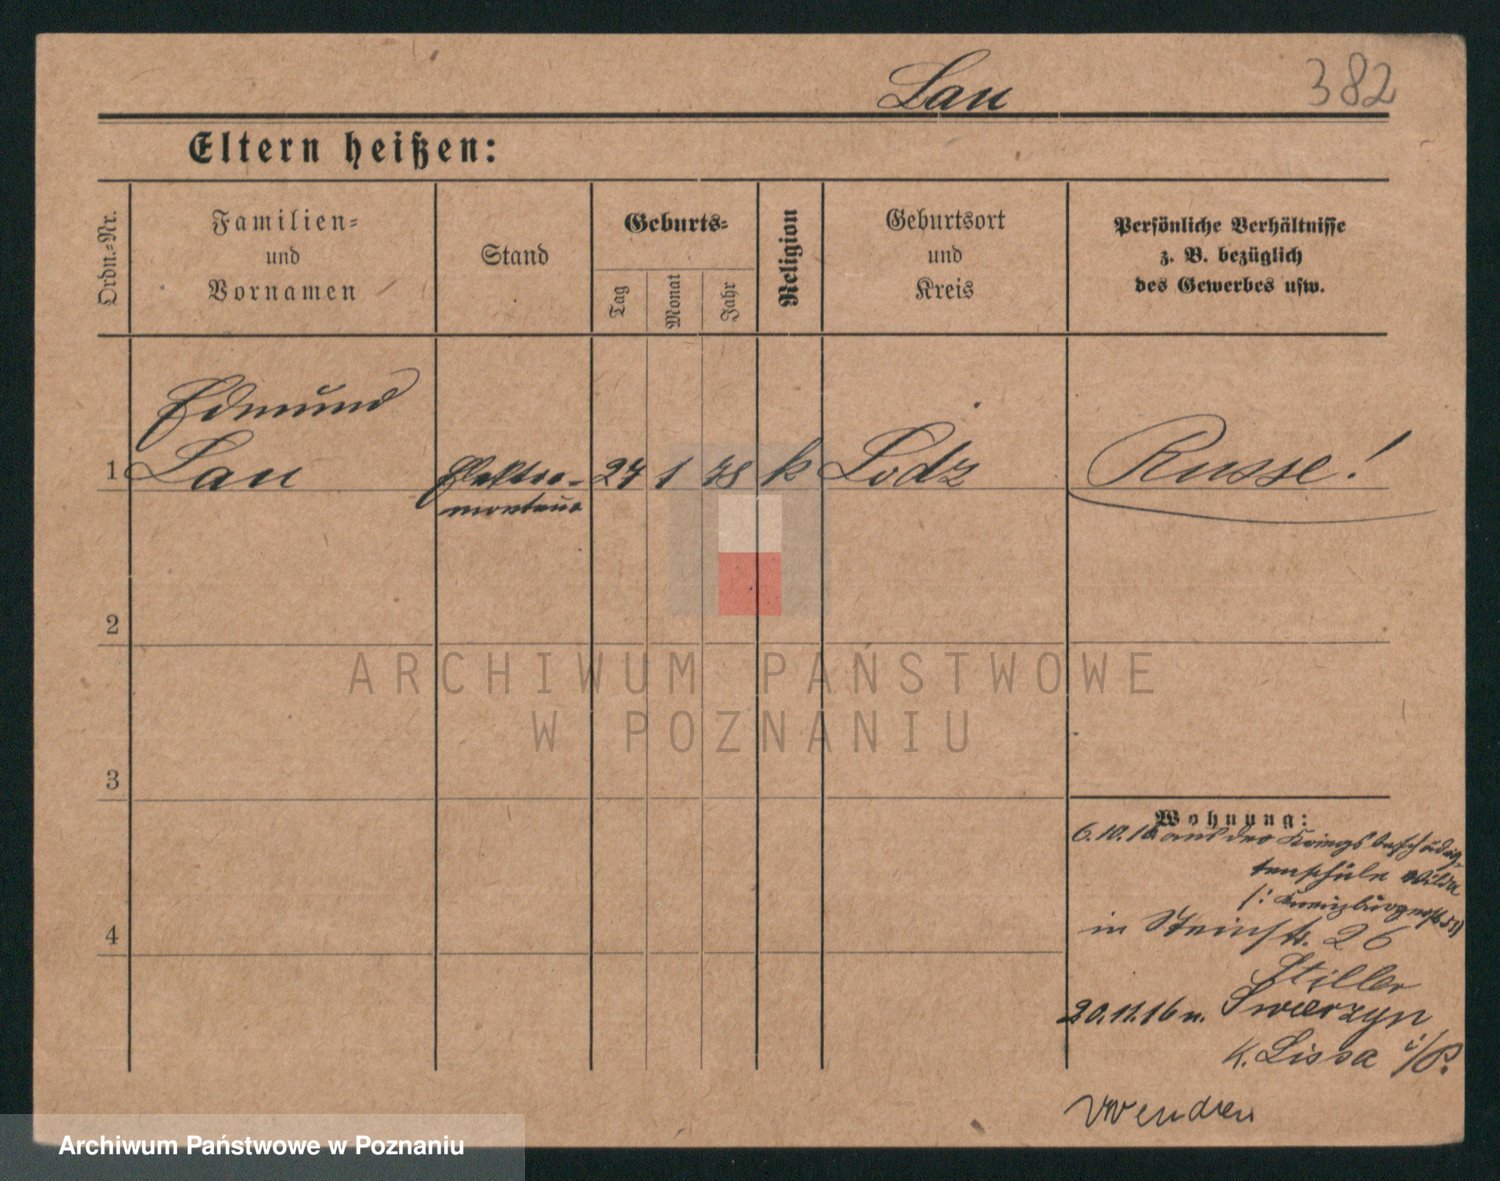 Lau 382
Eltern heißen:
Ordn.-Nr.
Familien-
und
Vornamen
Stand
Geburts-
Tag
Monat
Jahr
Religion
Geburtsort
und
Kreis
Persönliche Verhältnisse
z. B. bezüglich
des Gewerbes usw.
Edmund
1 Lau Elektro- 27 1 78 k Lodz Russe!
monteur
2
ARCHIWUM PAŃSTWOWE
W POZNANIU
3
Wohnung:
6.10.16 aus der Kriegsbeschädig-
tenschule Wilda
4
in Steinstr. 26
Stiller
20.11.16 n. Swierzyn
K. Lissa i/P.
wenden
Archiwum Państwowe w Poznaniu